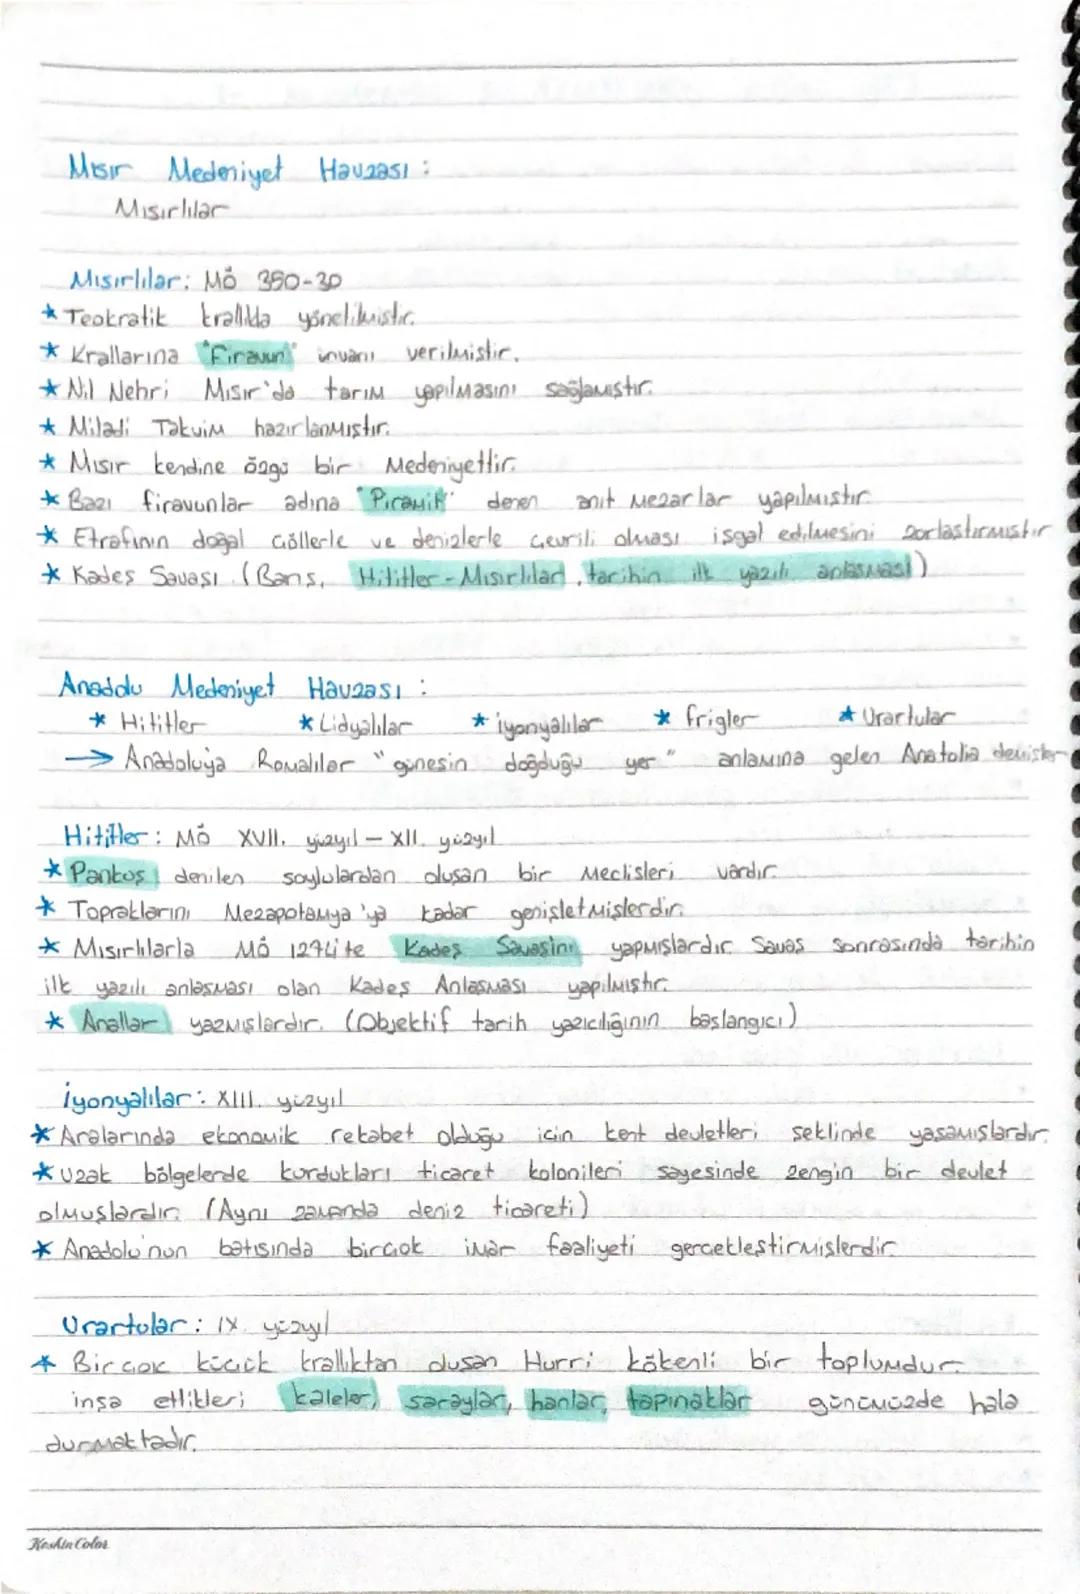 Mısır Medeniyet Havzası :
Mısırlılar
Mısırlılar: MÖ 350-30
* Teokratik krallıkla yönetilmiştir.
* Krallarına "Firavun" ünvanı verilmiştir.
* Nil Nehri Mısır'da tarım yapılmasını sağlamıştır.
* Miladi Takvim hazırlanmıştır.
* Mısır kendine özgü bir Medeniyettir.
* Bazı firavunlar adına "Piramit" denen anıt mezarlar yapılmıştır.
* Etrafının doğal çöllerle ve denizlerle çevrili olması işgal edilmesini zorlaştırmıştır
* Kadeş Savaşı (Barış, Hititler - Mısırlılar, tarihin ilk yazılı anlaşması)
Anadolu Medeniyet Havzası :
* Hititler * Lidyalılar * iyonyalılar * frigler * Urartular
→ Anadolu'ya Romalılar "güneşin doğduğu yer" anlamına gelen Anatolia demişler
Hititler : MÖ XVII. yüzyıl - XII. yüzyıl
* Pankuş denilen soylulardan oluşan bir Meclisleri vardır.
* Topraklarını Mezapotamya'ya kadar genişletmişlerdir.
* Mısırlılarla MÖ 1274'te Kadeş Savaşını yapmışlardır. Savaş sonrasında tarihin
ilk yazılı anlaşması olan Kadeş Anlaşması yapılmıştır.
* Anallar yazmışlardır. (Objektif tarih yazıcılığının başlangıcı)
İyonyalılar : XIII. yüzyıl
* Aralarında ekonomik rekabet olduğu için kent devletleri şeklinde yaşamışlardır.
* Uzak bölgelerde kurdukları ticaret kolonileri sayesinde zengin bir devlet
olmuşlardır. (Aynı zamanda deniz ticareti)
* Anadolu'nun batısında birçok imar faaliyeti gerçekleştirmişlerdir.
Urartular : IX. yüzyıl
* Birçok küçük krallıktan oluşan Hurri kökenli bir toplumdur.
inşa ettikleri kaleler, saraylar, hanlar, tapınaklar günümüzde hala
durmaktadır.
Keskin Color